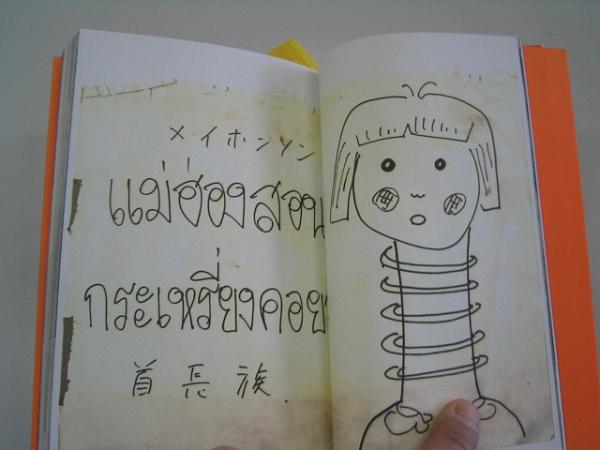 メイホンソン
แม่ฮ่องสอน
กระเหรี่ยงคอย
首長族.